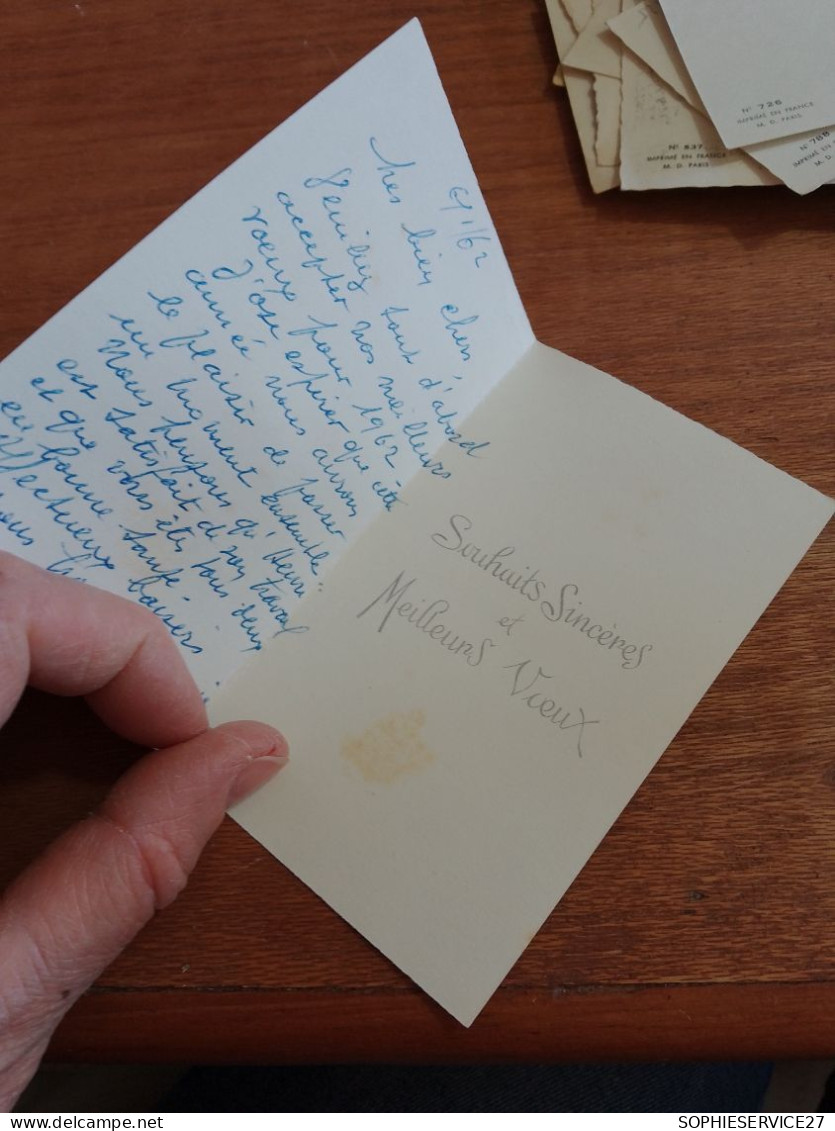 6/1/62
Mes bien chers,
Veuillez tout d'abord
accepter nos meilleurs
voeux pour 1962
J'ose espérer que cette
année nous aurons
le plaisir de passer
un moment ensemble
Nous pensons qu'Henri
est satisfait de son travail
et que vous êtes tous deux
en bonne santé.
affectueux baisers
Souhaits Sincères
et
Meilleurs Vœux
N° 726
IMPRIMÉ EN FRANCE
M. D. PARIS
N° 537
IMPRIMÉ EN FRANCE
M. D. PARIS
N° 788
IMPRIMÉ EN
M. D. PARIS
delcampe.net
SOPHIESERVICE27